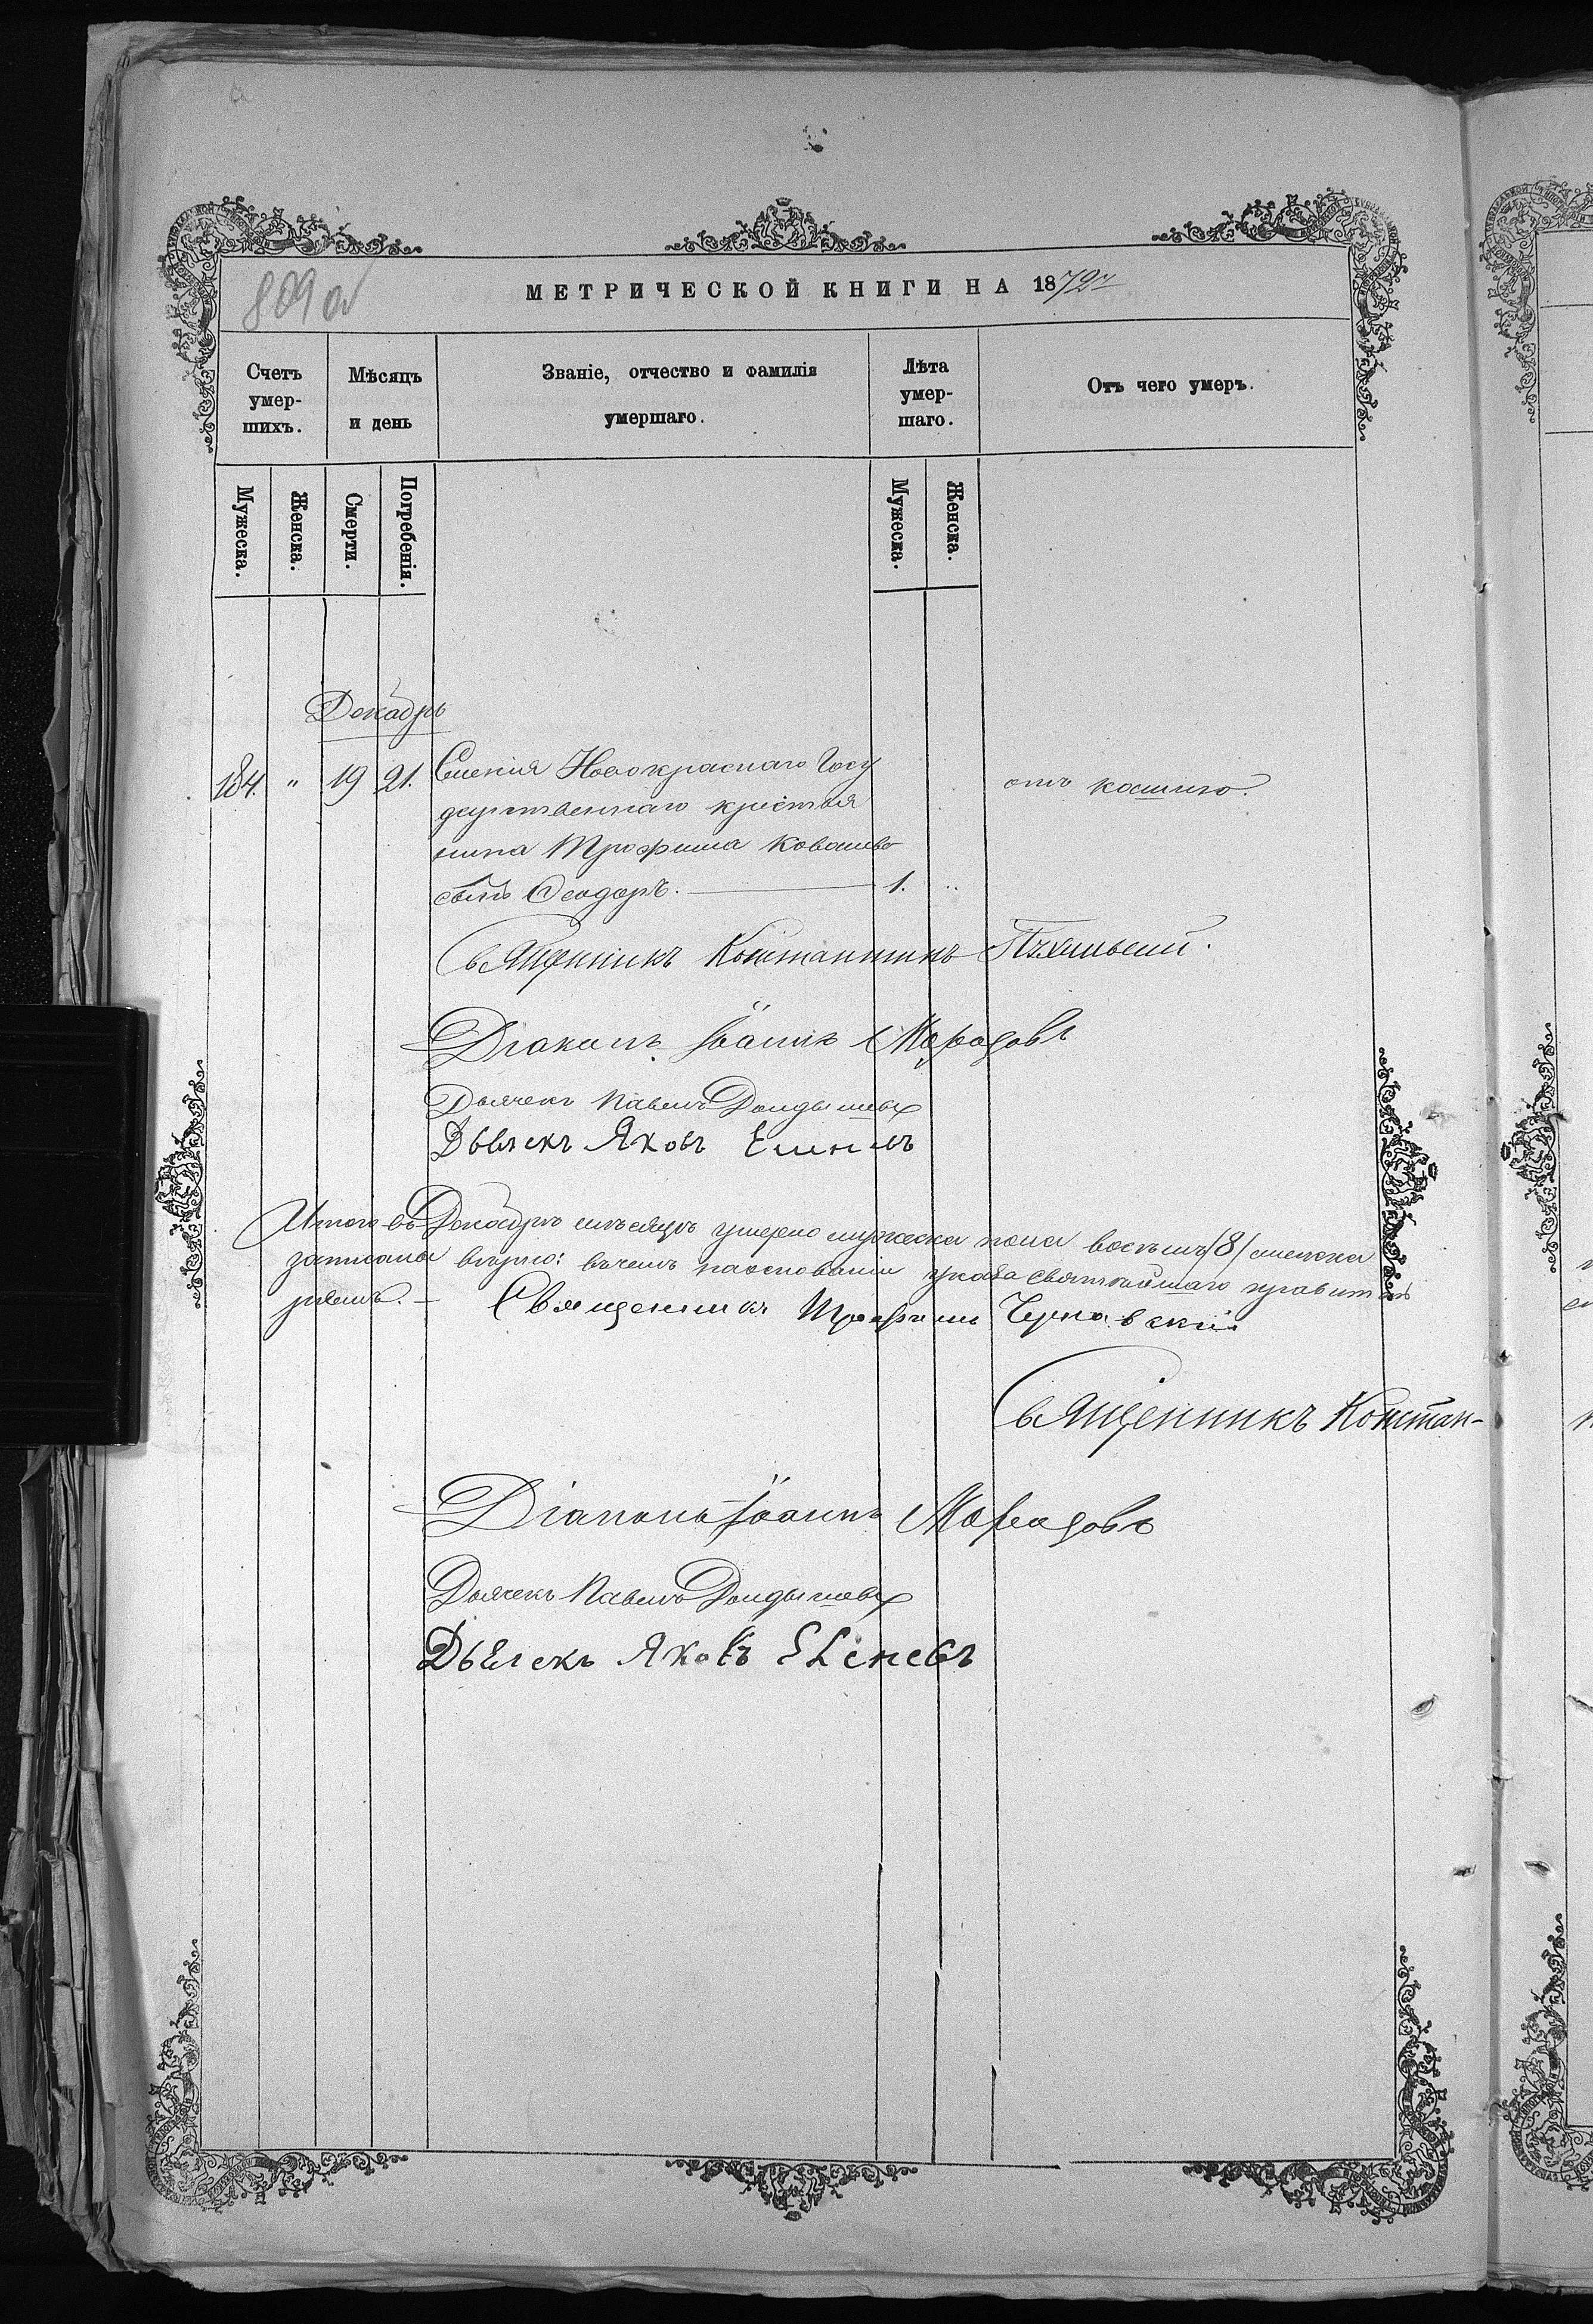 809 об
МЕТРИЧЕСКОЙ КНИГИ НА 1872 г
Счетъ умер- шихъ.
Мѣсяцъ и день
Званіе, отчество и фамилія умершаго.
Лѣта умер- шаго.
Отъ чего умеръ.
Мужеска.
Женска.
Смерти.
Погребенія.
Мужеска.
Женска.
Декабрь
184. " 19 21. Селенія Новокраснаго Госу
дарственнаго крестья
нина Трофима
сынъ Ѳеодоръ. 1. "
отъ кашлю.
Священникъ Константинъ
Діаконъ Іоаннъ Морозовъ
Дьячекъ Павелъ
Дьячекъ Яковъ
Итого въ Декабрѣ мѣсяцѣ умерло мужеска пола восемь /8/ женска
записаны вѣрно: въ чемъ на основаніи указа святѣйшаго правитель
Священникъ Трофимъ Чернавскій
Священникъ Констан-
Діаконъ Іоаннъ Морозовъ
Дьячекъ Павелъ
Дьячекъ Яковъ